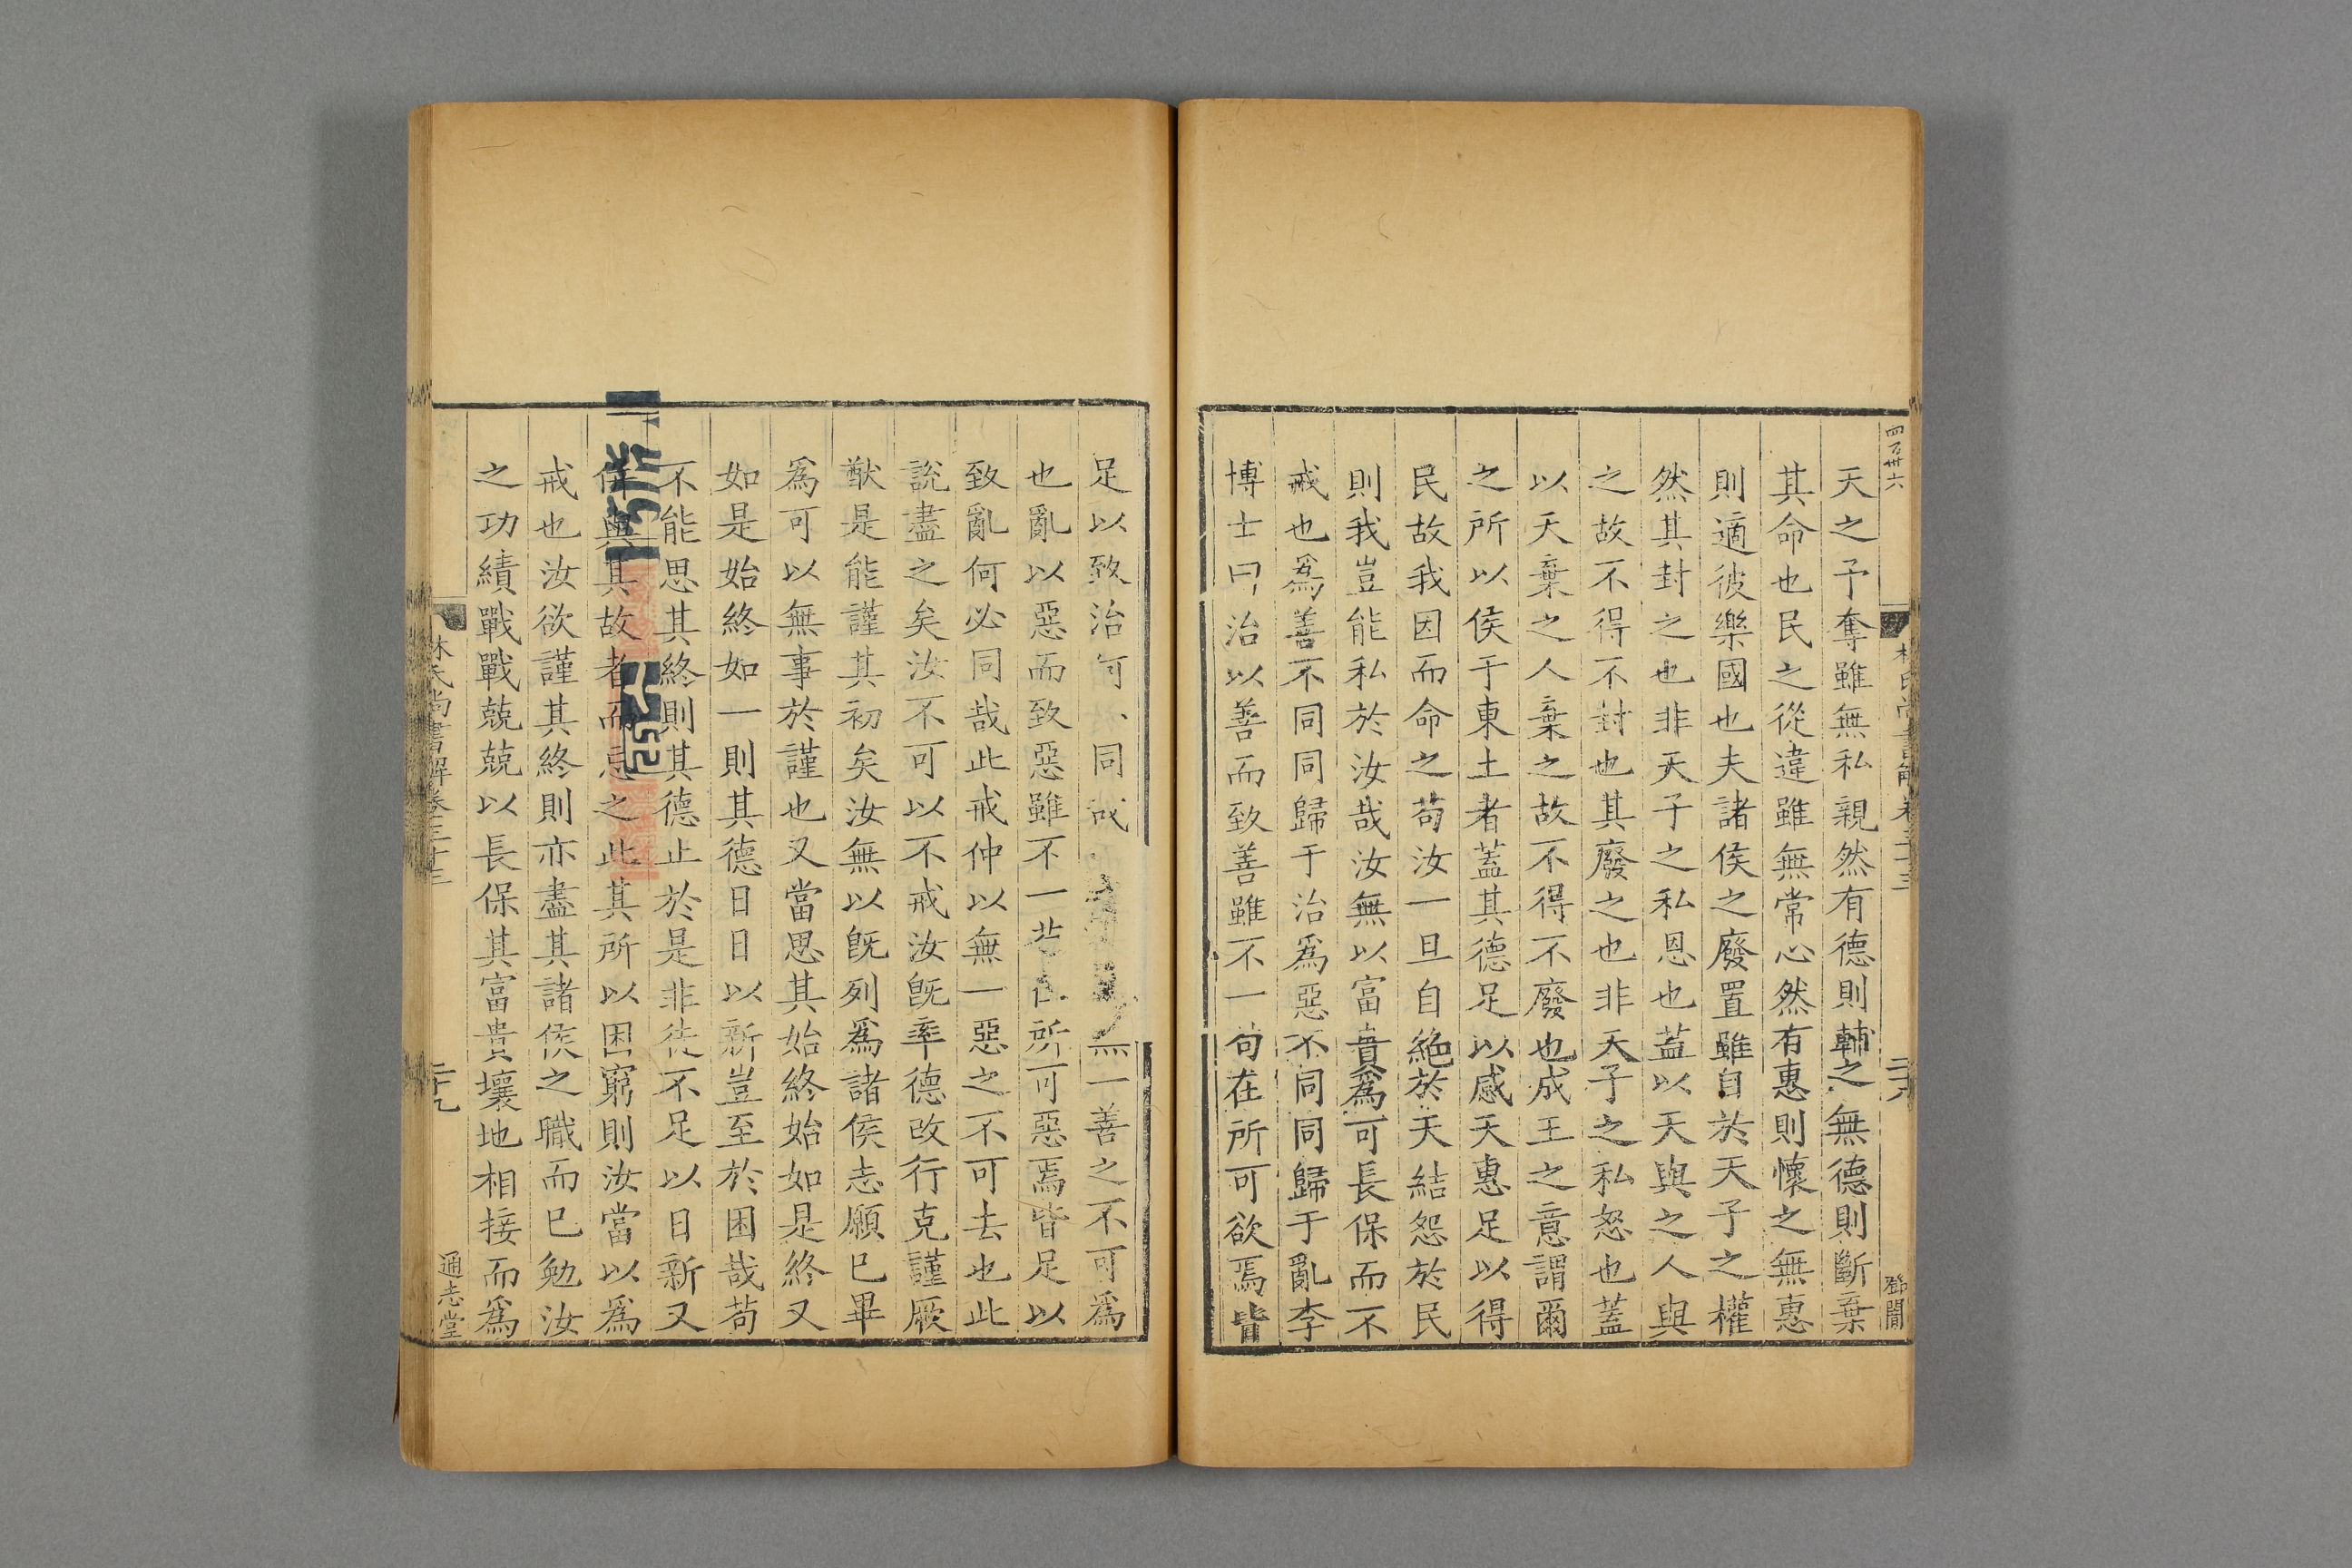 四百卅六
天之予奪雖無私親然有德則輔之無德則斷棄
其命也民之從違雖無常心然有惠則懷之無惠
則適彼樂國也夫諸侯之廢置雖自於天子之權
然其封之也非天子之私恩也蓋以天與之人與
之故不得不封也其廢之也非天子之私怒也蓋
以天棄之人棄之故不得不廢也成王之意謂爾
之所以侯于東土者蓋其德足以感天惠足以得
民故我因而命之苟汝一旦自絶於天結怨於民
則我豈能私於汝哉汝無以富貴爲可長保而不
戒也爲善不同同歸于治爲惡不同同歸于亂李
博士曰治以善而致善雖不一苟在所可欲焉皆
鄧閶
足以致治何同哉無一善之不可爲
也亂以惡而致惡雖不一所可惡焉皆足以
致亂何必同哉此戒仲以無一惡之不可去也此
說盡之矣汝不可以不戒汝旣率德改行克謹厥
猷是能謹其初矣汝無以旣列爲諸侯志願已畢
爲可以無事於謹也又當思其始終始如是終又
如是始終如一則其德日日以新豈至於困哉苟
不能思其終則其德止於是非徒不足以日新又
併與其故者而忘之此其所以困窮則汝當以爲
戒也汝欲謹其終則亦盡其諸侯之職而已勉汝
之功績戰戰兢兢以長保其富貴壤地相接而爲
林氏尚書解卷三十三
二十九
通志堂